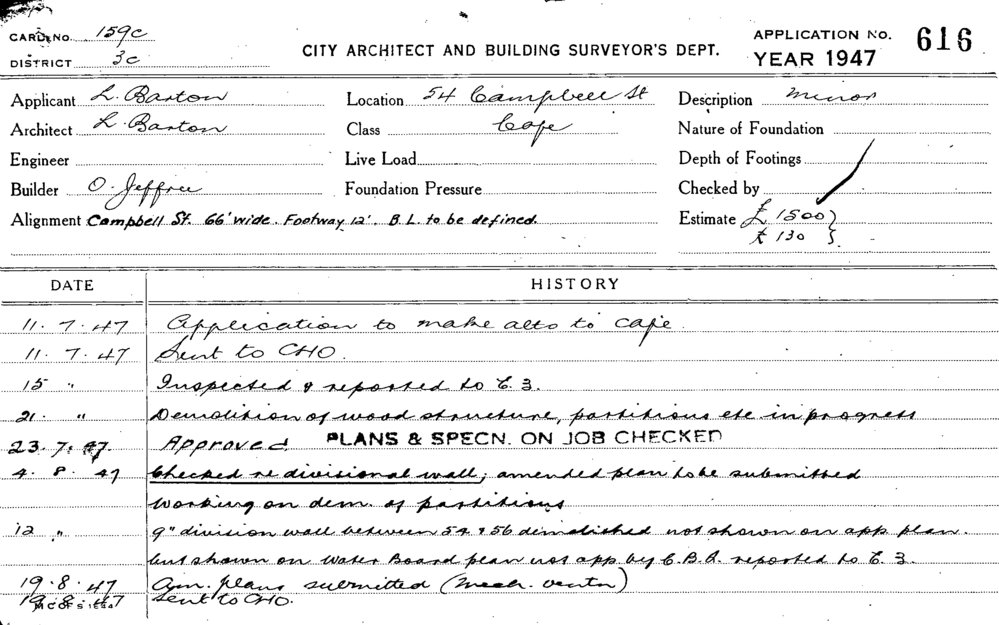 CARD No. 159c
DISTRICT 3c
CITY ARCHITECT AND BUILDING SURVEYOR'S DEPT.
APPLICATION No. 616
YEAR 1947
Applicant L. Barton Location 54 Campbell St Description Minor
Architect L. Barton Class Cafe Nature of Foundation
Engineer Live Load Depth of Footings
Builder O. Jeffree Foundation Pressure Checked by
Alignment Campbell St. 66' wide. Footway 12'. B.L. to be defined. Estimate £ 1500 }
£ 130 }
DATE HISTORY
11. 7. 47 Application to make alts to cafe
11. 7. 47 Sent to CHO.
15 " Inspected & reported to E.3.
21. " Demolition of wood structure, partitions etc in progress
23. 7. 47. Approved PLANS & SPECN. ON JOB CHECKED
4. 8. 47 Checked re divisional wall; amended plan to be submitted
Working on dem. of partitions
12 " 9" division wall between 54 & 56 demolished not shown on app. plan.
but shown on Water Board plan not app by C.B.S. reported to E.3
19. 8. 47 Am. plans submitted (Mech. ventn)
19. 8. 47 Sent to CHO.